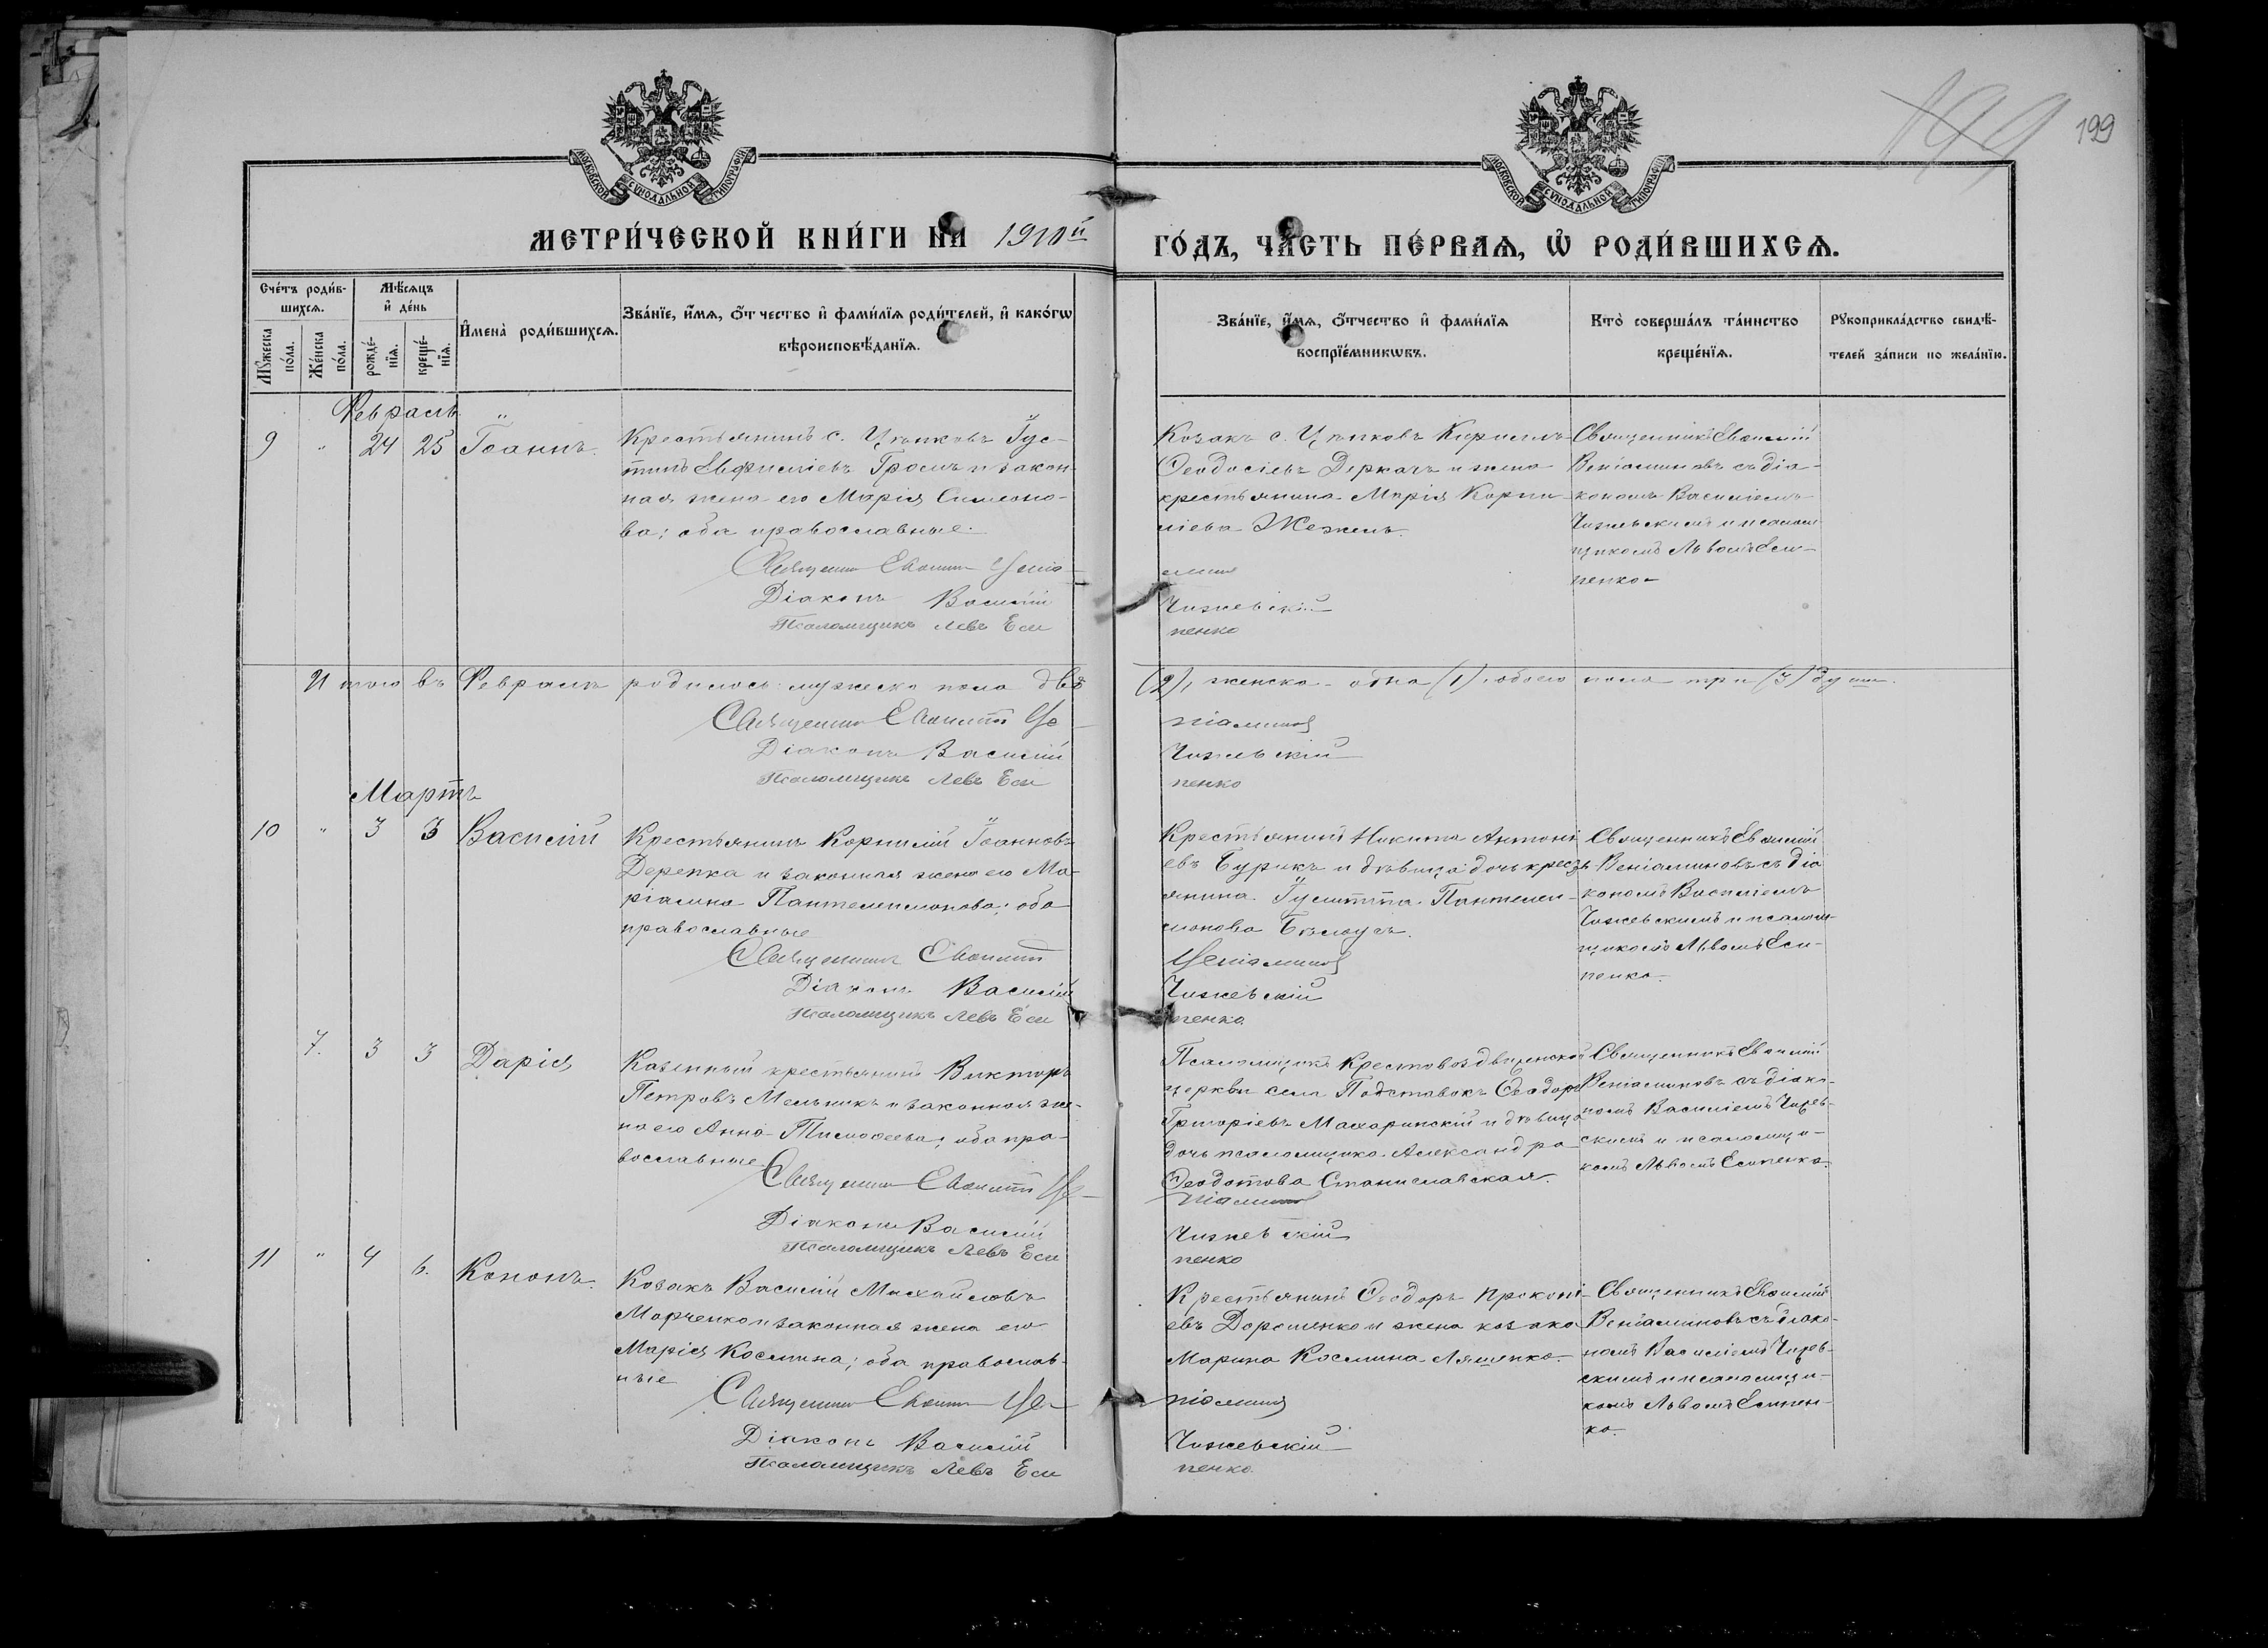 199
199
МОСКОВСКОЙ СѴНОДАЛЬНОЙ ТИПОГРАФІИ
МОСКОВСКОЙ СѴНОДАЛЬНОЙ ТИПОГРАФІИ
МЕТРИ́ЧЕСКОЙ КНИ́ГИ НА 1910й
ГО́ДЪ, ЧА́СТЬ ПЕ́РВАЯ, Ѡ҆ РОДИ́ВШИХСЯ.
Сче́тъ роди́в-
шихся.
Мꙋ́жеска по́ла.
Же́нска по́ла.
Мѣ́сяцъ
и҆ де́нь
рожде́-
нїя.
креще́-
нїя.
И҆мена̀ роди́вшихся.
Зва́нїе, и҆́мя, ѻ҆́тчество и҆ фами́лїя роди́телей, и҆ како́гѡ
вѣроисповѣ́данїя.
Зва́нїе, и҆́мя, ѻ҆́тчество и҆ фами́лїя
воспрїе́мникѡвъ.
Кто̀ соверша́лъ та́инство
креще́нїя.
Рꙋкоприкла́дство свидѣ́-
телей за́писи по жела́нїю.
Февраль
9 " 24 25 Іоаннъ.
Крестьянинъ с. Цѣпковъ Іус-
тинъ Евфиміевъ Громъ и закон-
ная жена его Марія Симеоно-
ва; оба православные.
Священник
Діаконъ Василій
Псаломщикъ Левъ Еси
Козакъ с. Цѣпковъ Кириллъ
Ѳеодосіевъ Деркачъ и жена
крестьянина Марія Корни-
ліева Жежель.
Чижевскій
пенко
Священникъ
Веніаминовъ съ діа-
кономъ Василіемъ
Чижевскимъ и псалом-
щикомъ Львомъ Еси-
пенко
Итого въ Февралѣ родилось: мужеска пола два (2), женска одна (1), обоего пола три (3) души.
Священник
Діаконъ Василій
Псаломщикъ Левъ Еси
Чижевскій
пенко
Мартъ
10 " 3 3 Василій
Крестьянинъ Корнилій Іоанновъ
Дерепка и законная жена его Ма-
ріамна Пантелеимонова; оба
православные
Священник
Діаконъ Василій
Псаломщикъ Левъ Еси
Крестьянинъ Никита Антоні-
евъ Бурикъ и дѣвица дочь крест-
янина Іустина Пантелеи-
монова Бѣлоусъ.
Веніаминов
Чижевскій
пенко
Священникъ
Веніаминовъ съ діа
кономъ Василіемъ
Чижевскимъ и псалом-
щикомъ Львомъ Еси-
пенко.
7. 3 3 Дарія
Казенный крестьянинъ Викторъ
Петровъ Мельникъ и законная же-
на его Анна Тимоѳеева; оба пра-
вославные
Священник
Діаконъ Василій
Псаломщикъ Левъ Еси
Псаломщикъ Крестовоздвиженской
церкви села Подставокъ Ѳеодоръ
Григоріевъ Махаринскій и дѣвица
дочь псаломщика Александра
Ѳеодотова Станиславская.
Чижевскій
пенко
Священникъ
Веніаминовъ съ діако-
номъ Василіемъ Чижев-
скимъ и псаломщи-
комъ Львомъ Есипенко.
11 " 4 6. Кононъ.
Козакъ Василій Михайловъ
Марченко и законная жена его
Марія Космина; оба православ-
ные
Священник
Діаконъ Василій
Псаломщикъ Левъ Еси
Крестьянинъ Ѳеодоръ Прокопі-
евъ Дорошенко и жена козака
Марина Космина Ляшенко.
Чижевскій
пенко.
Священникъ
Веніаминовъ съ діако-
номъ Василіемъ Чижев-
скимъ и псаломщи-
комъ Львомъ Есипен-
ко.